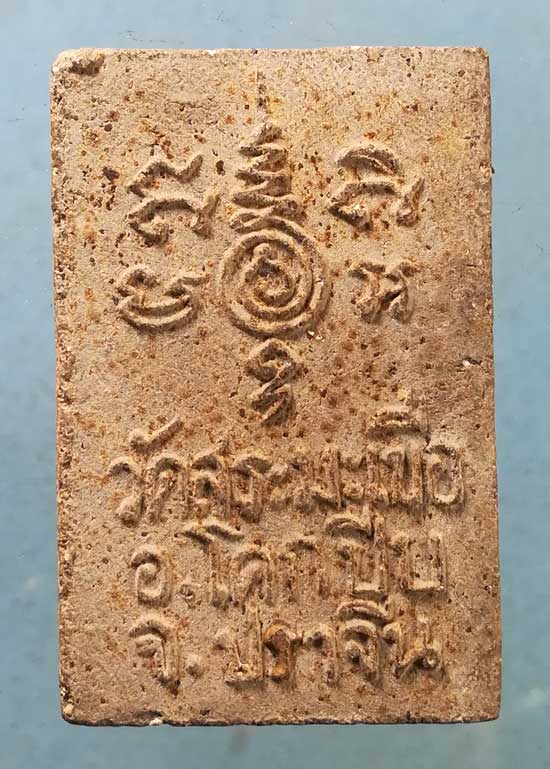 วัดสระมะเขือ
อ.โคกปีบ
จ.ปราจีน